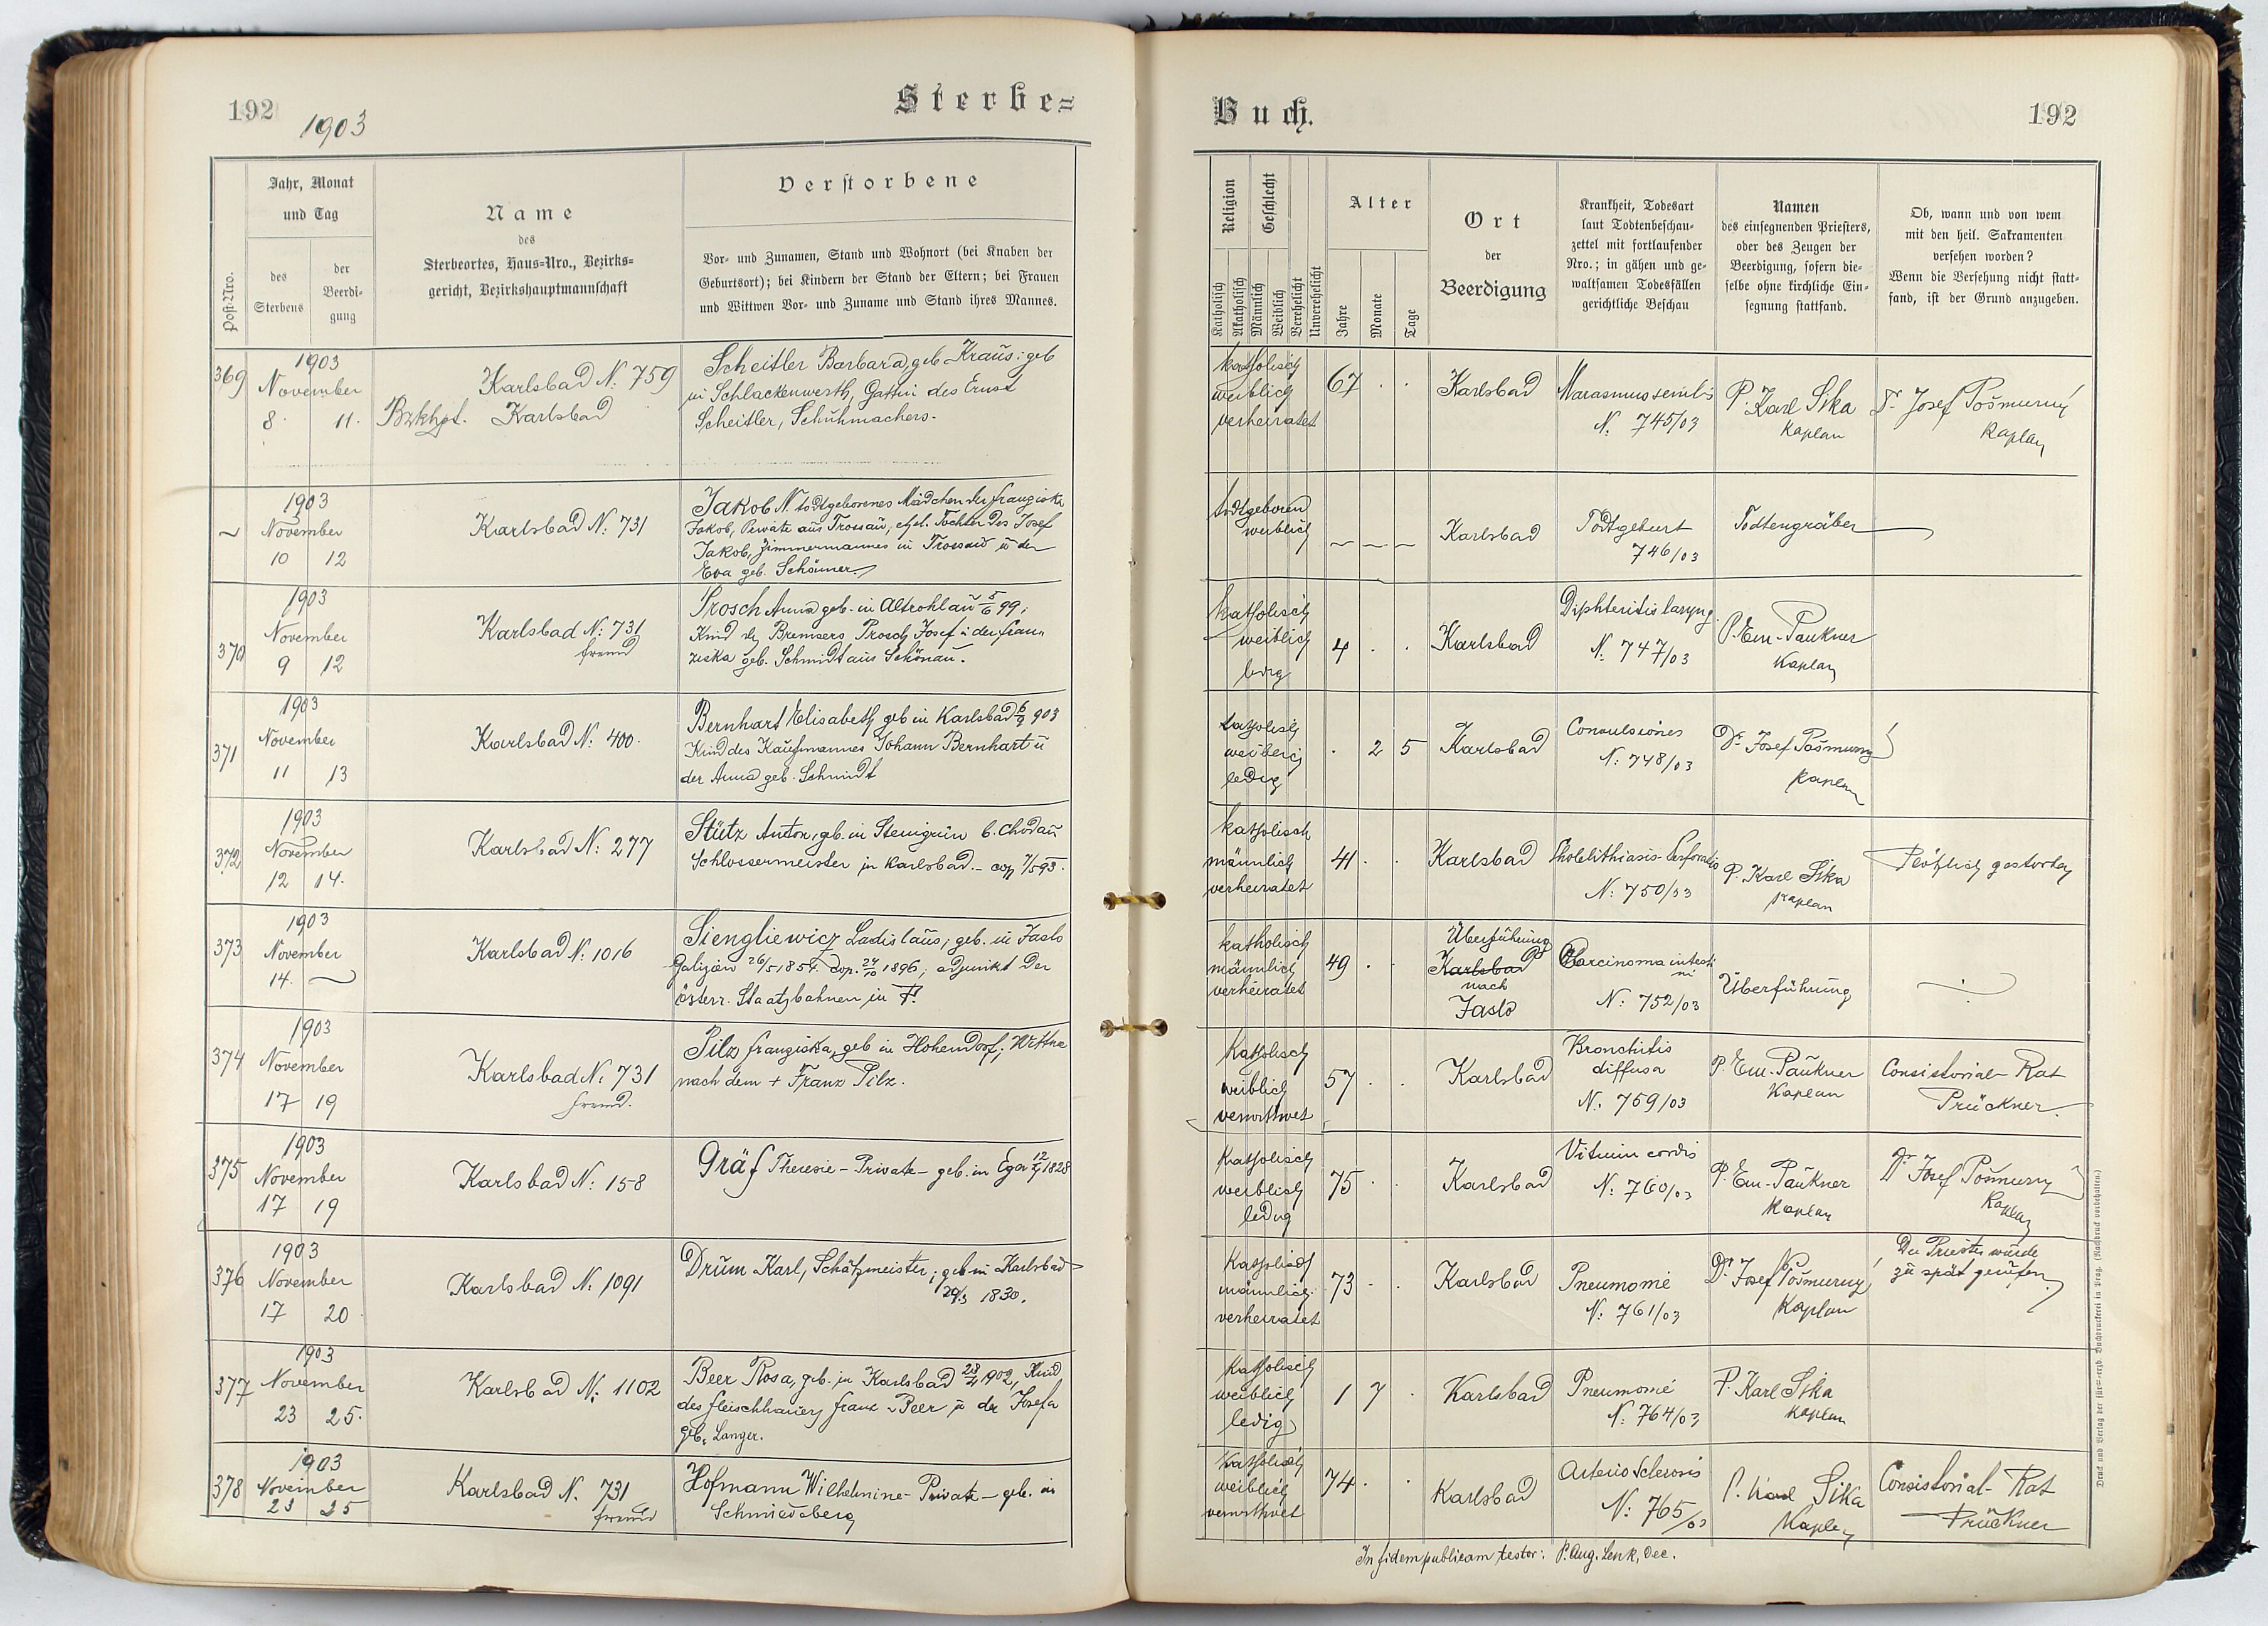 192
1903
Sterbe=
Post-Nro.
Jahr, Monat
und Tag
des
Sterbens
der
Beerdi-
gung
Name
des
Sterbeortes, Haus-Nro., Bezirks-
gericht, Bezirkshauptmannschaft
Verstorbene
Vor- und Zunamen, Stand und Wohnort (bei Knaben der
Geburtsort); bei Kindern der Stand der Eltern; bei Frauen
und Wittwen Vor- und Zuname und Stand ihres Mannes.
369
1903
November
8. 11.
Karlsbad N: 759
Bzkhpt. Karlsbad
Scheitler Barbara, geb Kraus; geb
in Schlackenwerth, Gattin des Ernst
Scheitler, Schuhmachers.
1903
November
10 12
Karlsbad N: 731
Jakob N. todtgeborenes Mädchen der Franziska
Jakob, Private aus Trossau, ehel. Tochter des Josef
Jakob, Zimmermannes in Trossau u der
Eva geb. Schömer
370
1903
November
9 12
Karlsbad N: 731
fremd
Prosch Anna geb. in Altrohlau 5/6 99;
Kind des Bremsers Prosch Josef u der Fran-
ziska geb. Schmidt aus Schönau.
371
1903
November
11 13
Karlsbad N: 400.
Bernhart Elisabeth geb in Karlsbad 6/9 903
Kind des Kaufmannes Johann Bernhart u
der Anna geb. Schmidt
372
1903
November
12 14.
Karlsbad N: 277
Stütz Anton, geb. in Steingrün b. Chodau
Schlossermeister in Karlsbad. - cop 7/5 93.
373
1903
November
14.
Karlsbad N: 1016
Siengliewicz Ladislaus, geb. in Jaslo
Galizien 26/5 1854. Cop. 24/10 1896, adjunkt der
österr. Staatsbahnen in
374
1903
November
17 19
Karlsbad N: 731
fremd.
Pilz Franziska, geb in Hohendorf; Wittwe
nach dem + Franz Pilz.
375
1903
November
17 19
Karlsbad N: 158
Gräf Theresie - Private - geb. in Eger 12/7 1828
376
1903
November
17 20
Karlsbad N: 1091
Drum Karl, Schätzmeister; geb in Karlsbad
29/3 1830.
377
1903
November
23 25.
Karlsbad N: 1102
Beer Rosa, geb. in Karlsbad 28/4 1902, Kind
des Fleischhauers Franz Beer u der Josefa
geb. Langer.
378
1903
November
23 25
Karlsbad N. 731
fremd
Hofmann Wilhelmine - Private - geb. in
Schmiedeberg
Buch.
192
Religion
Geschlecht
Katholisch
Akatholisch
Männlich
Weiblich
Verehelicht
Unverehelicht
Alter
Jahre
Monate
Tage
Ort
der
Beerdigung
Krankheit, Todesart
laut Todtenbeschau-
zettel mit fortlaufender
Nro.; in gähen und ge-
waltsamen Todesfällen
gerichtliche Beschau
Namen
des einsegnenden Priesters,
oder des Zeugen der
Beerdigung, sofern die-
selbe ohne kirchliche Ein-
segnung stattfand.
Ob, wann und von wem
mit den heil. Sakramenten
versehen worden?
Wenn die Versehung nicht statt-
fand, ist der Grund anzugeben.
katholisch
weiblich
verheiratet
67
Karlsbad
Marasmus senilis
N. 745/03
P. Karl Sika
Kaplan
Josef Pošmurný
Kaplan
todtgeboren
weiblich
Karlsbad
Todtgeburt
746/03
Todtengräber
katholisch
weiblich
ledig
4
Karlsbad
Diphteritis laryng.
N: 747/03
P. Em. Paukner
Kaplan
katholisch
weiblich
ledig
2 5
Karlsbad
Convulsiones
N: 748/03
Dr. Josef Pošmurný
Kaplan
katholisch
männlich
verheiratet
41
Karlsbad
Cholelithiasis - Perforatio
N: 750/03
P. Karl Sika
Kaplan
Plötzlich gestorben
katholisch
männlich
verheiratet
49
Überführung
Karlsbad
nach
Jaslo
Carcinoma intesti
ni
N: 752/03
Überführung
Katholisch
weiblich
verwittwet
57
Karlsbad
Bronchitis
diffusa
N. 759/03
P. Em. Paukner
Kaplan
Consistorial-Rat
Prückner.
Katholisch
weiblich
ledig
75
Karlsbad
Vitium cordis
N: 760/03
P. Em. Paukner
Kaplan
Dr. Josef Pošmurný
Kaplan
Katholisch
männlich
verheiratet
73
Karlsbad
Pneumonie
N: 761/03
Dr. Josef Pošmurný
Kaplan
Der Priester wurde
zu spät gerufen.
Katholisch
weiblich
ledig
1 7
Karlsbad
Pneumonie
N: 764/03
P. Karl Sika
Kaplan
Katholisch
weiblich
verwittwet
74
Karlsbad
Arterio Sclerosis
N: 765/03
P. Karl Sika
Kaplan
Consistorial-Rat
Prückner
In fidem publicam testor: P. Aug. Lenk, Dec.
Druck und Verlag der fürst-erzb. Buchdruckerei in Prag. (Nachdruck vorbehalten.)